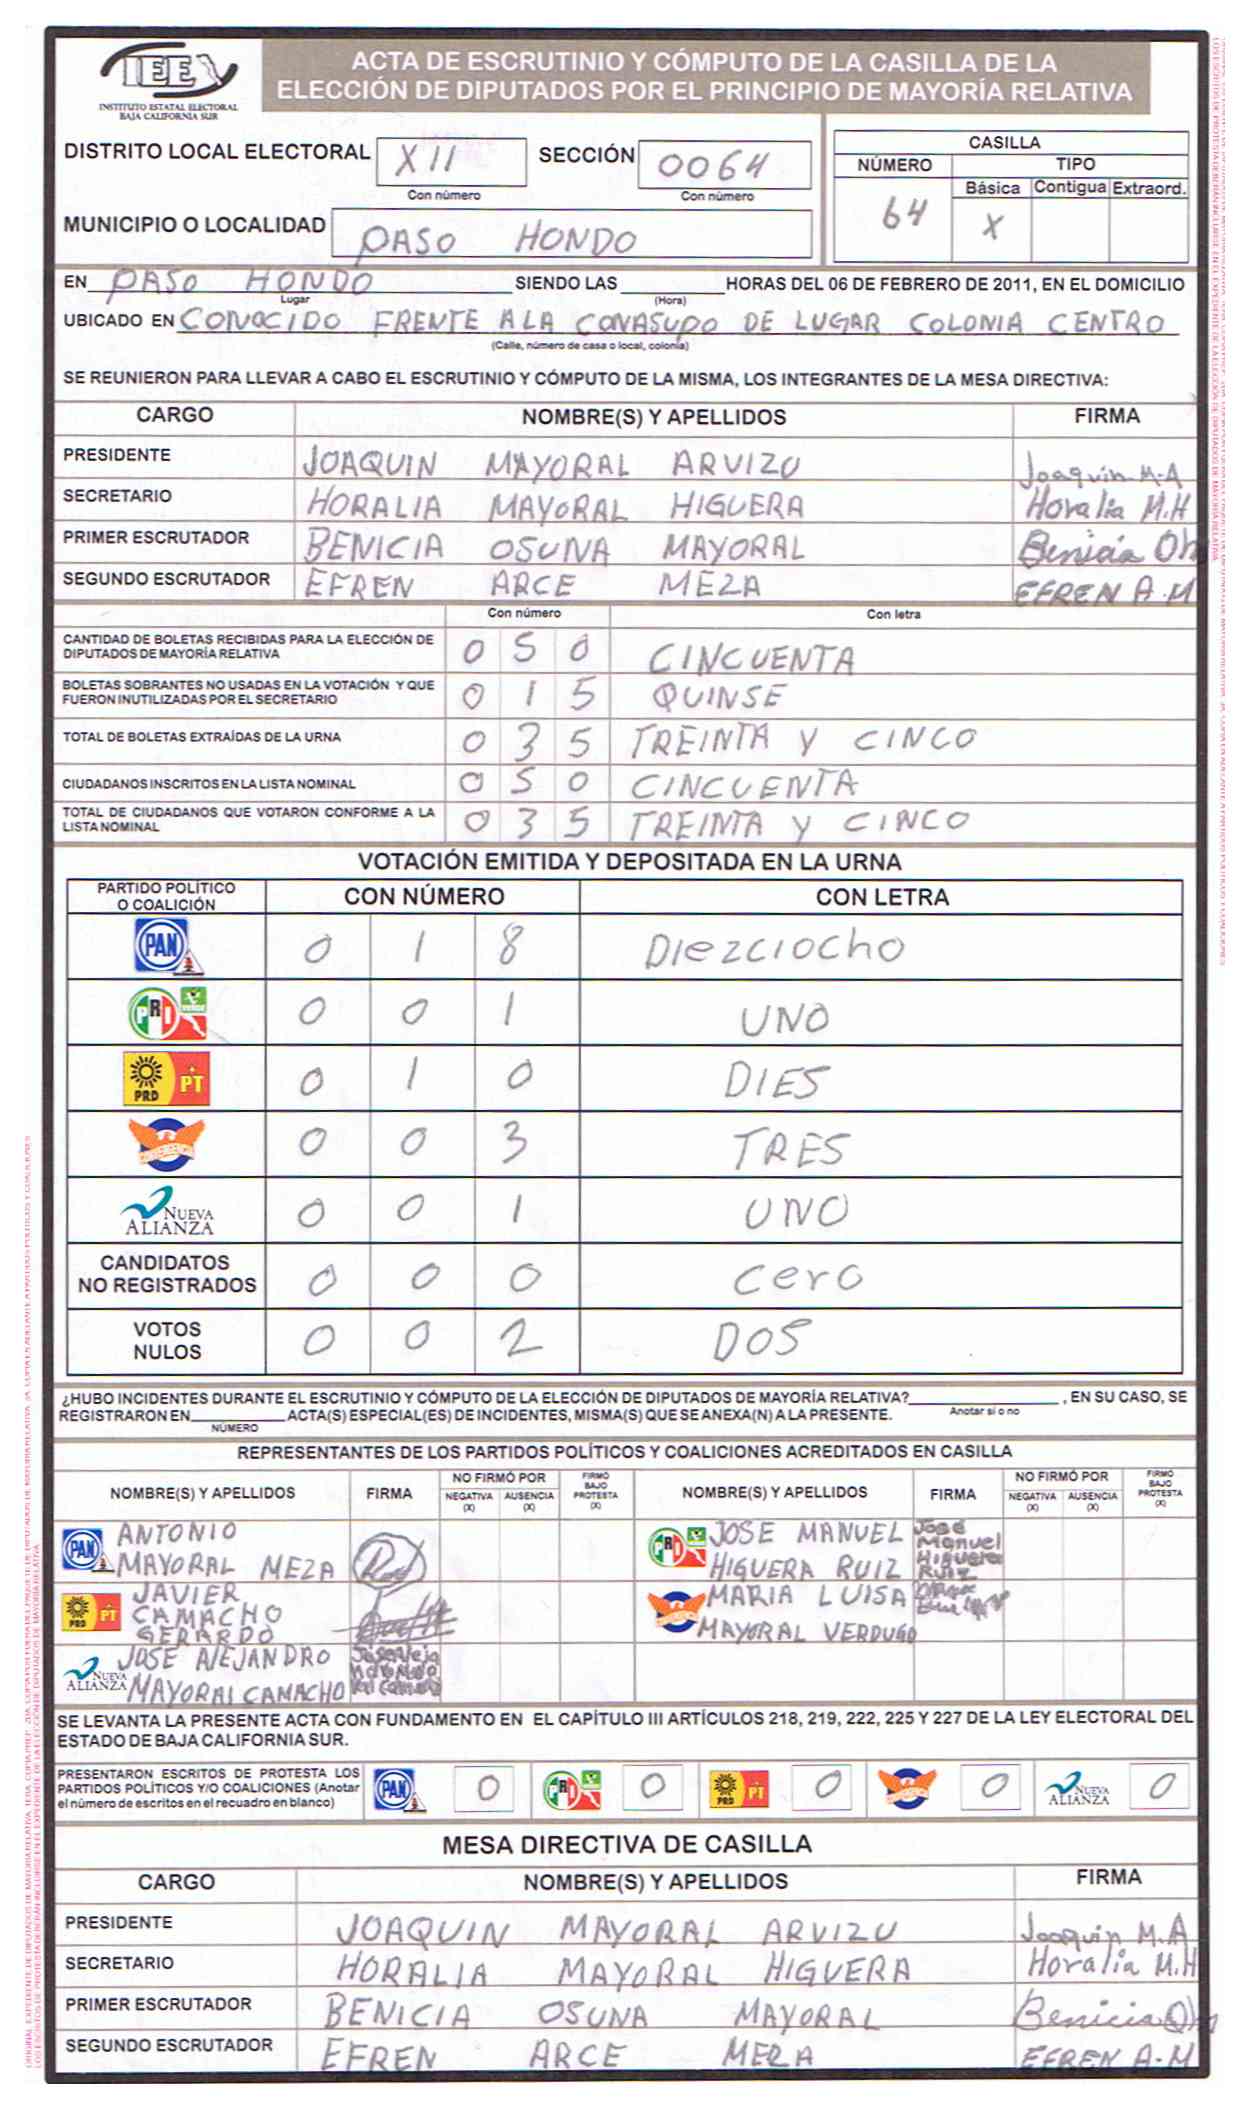 IEE
INSTITUTO ESTATAL ELECTORAL
BAJA CALIFORNIA SUR
ACTA DE ESCRUTINIO Y CÓMPUTO DE LA CASILLA DE LA
ELECCIÓN DE DIPUTADOS POR EL PRINCIPIO DE MAYORÍA RELATIVA
DISTRITO LOCAL ELECTORAL XII SECCIÓN 0064
Con número Con número
CASILLA
NÚMERO TIPO
Básica Contigua Extraord.
64 X
MUNICIPIO O LOCALIDAD PASO HONDO
EN PASO HONDO SIENDO LAS HORAS DEL 06 DE FEBRERO DE 2011, EN EL DOMICILIO
Lugar (Hora)
UBICADO EN CONOCIDO FRENTE A LA CONASUPO DE LUGAR COLONIA CENTRO
(Calle, número de casa o local, colonia)
SE REUNIERON PARA LLEVAR A CABO EL ESCRUTINIO Y CÓMPUTO DE LA MISMA, LOS INTEGRANTES DE LA MESA DIRECTIVA:
CARGO NOMBRE(S) Y APELLIDOS FIRMA
PRESIDENTE JOAQUIN MAYORAL ARVIZU Joaquin M.A
SECRETARIO HORALIA MAYORAL HIGUERA Horalia M.H
PRIMER ESCRUTADOR BENICIA OSUNA MAYORAL Benicia Om
SEGUNDO ESCRUTADOR EFREN ARCE MEZA EFREN A.M
Con número Con letra
CANTIDAD DE BOLETAS RECIBIDAS PARA LA ELECCIÓN DE
DIPUTADOS DE MAYORÍA RELATIVA 0 5 0 CINCUENTA
BOLETAS SOBRANTES NO USADAS EN LA VOTACIÓN Y QUE
FUERON INUTILIZADAS POR EL SECRETARIO 0 1 5 QUINSE
TOTAL DE BOLETAS EXTRAÍDAS DE LA URNA 0 3 5 TREINTA Y CINCO
CIUDADANOS INSCRITOS EN LA LISTA NOMINAL 0 5 0 CINCUENTA
TOTAL DE CIUDADANOS QUE VOTARON CONFORME A LA
LISTA NOMINAL 0 3 5 TREINTA Y CINCO
VOTACIÓN EMITIDA Y DEPOSITADA EN LA URNA
PARTIDO POLÍTICO
O COALICIÓN CON NÚMERO CON LETRA
PAN 0 1 8 Diezciocho
PRI VERDE 0 0 1 UNO
PRD PT 0 1 0 DIES
CONVERGENCIA 0 0 3 TRES
NUEVA ALIANZA 0 0 1 UNO
CANDIDATOS
NO REGISTRADOS 0 0 0 cero
VOTOS
NULOS 0 0 2 DOS
¿HUBO INCIDENTES DURANTE EL ESCRUTINIO Y CÓMPUTO DE LA ELECCIÓN DE DIPUTADOS DE MAYORÍA RELATIVA? , EN SU CASO, SE
Anotar sí o no
REGISTRARON EN ACTA(S) ESPECIAL(ES) DE INCIDENTES, MISMA(S) QUE SE ANEXA(N) A LA PRESENTE.
NÚMERO
REPRESENTANTES DE LOS PARTIDOS POLÍTICOS Y COALICIONES ACREDITADOS EN CASILLA
NOMBRE(S) Y APELLIDOS FIRMA NO FIRMÓ POR NEGATIVA (X) AUSENCIA (X) FIRMÓ BAJO PROTESTA (X) NOMBRE(S) Y APELLIDOS FIRMA NO FIRMÓ POR NEGATIVA (X) AUSENCIA (X) FIRMÓ BAJO PROTESTA (X)
PAN ANTONIO
MAYORAL MEZA
PRI JOSE MANUEL
HIGUERA RUIZ
Jose
Manuel
Higuera
Ruiz
PRD PT JAVIER
CAMACHO
GERARDO
MARIA LUISA
MAYORAL VERDUGO
NUEVA ALIANZA JOSE ALEJANDRO
MAYORAL CAMACHO
SE LEVANTA LA PRESENTE ACTA CON FUNDAMENTO EN EL CAPÍTULO III ARTÍCULOS 218, 219, 222, 225 Y 227 DE LA LEY ELECTORAL DEL
ESTADO DE BAJA CALIFORNIA SUR.
PRESENTARON ESCRITOS DE PROTESTA LOS
PARTIDOS POLÍTICOS Y/O COALICIONES (Anotar
el número de escritos en el recuadro en blanco)
PAN 0 PRI 0 PRD PT 0 0 NUEVA ALIANZA 0
MESA DIRECTIVA DE CASILLA
CARGO NOMBRE(S) Y APELLIDOS FIRMA
PRESIDENTE JOAQUIN MAYORAL ARVIZU Joaquin M.A
SECRETARIO HORALIA MAYORAL HIGUERA Horalia M.H
PRIMER ESCRUTADOR BENICIA OSUNA MAYORAL Benicia Om
SEGUNDO ESCRUTADOR EFREN ARCE MEZA EFREN A.M